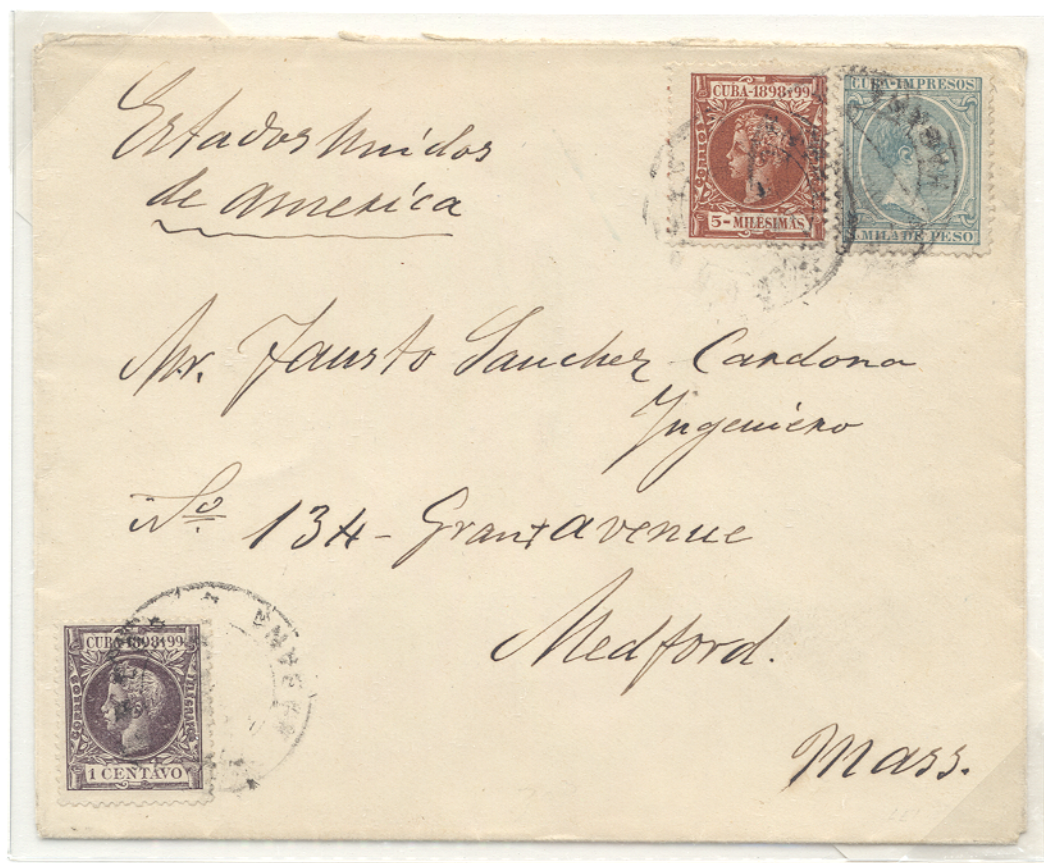 Estados Unidos
de America
CUBA-1898 Y 99
CORREOS
5- MILESIMAS
CUBA-IMPRESOS
MILA DE PESO
Mr. Fausto Sanchez Cardona
Ingeniero
No 134- Grant avenue
Medford.
Mass.
CUBA 1898 Y 99
CORREOS
TELEGRAFOS
1 CENTAVO
HABANA